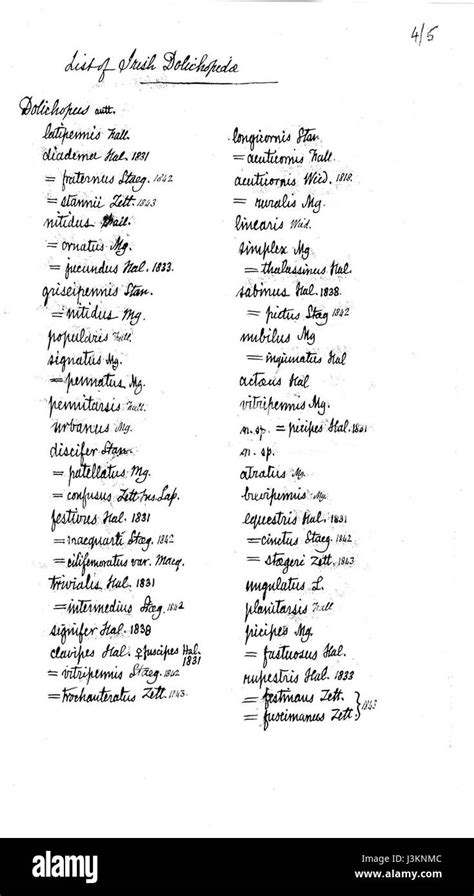 4/5
List of Irish Dolichopedæ
Dolichopus autt.
latipennis Fall.
diadema Hal. 1831
= fraternus Staeg. 1842
= stannii Zett. 1843
nitidus Fall.
= ornatus Mg.
= jucundus Hal. 1833.
griseipennis Stan.
= nitidus Mg.
popularis Fall.
signatus Mg.
= pennatus Mg.
pennitarsis Fall.
urbanus Mg.
discifer Stan
= patellatus Mg.
= confusus Zett. Ins. Lap.
festivus Hal. 1831
= macquarti Stæg. 1842
= cilifemoratus var. Macq.
trivialis Hal. 1831
= intermedius Stæg. 1842
signifer Hal. 1838
clavipes Hal. ♀ fuscipes Hal. 1831
= vitripennis Stæg. 1842
= trochanteratus Zett. 1843.
longicornis Stan
= acuticornis Fall.
acuticornis Wied. 1818.
= ruralis Mg.
linearis Wid.
simplex Mg
= thalassinus Hal
sabinus Hal. 1838.
= pictus Stæg 1842
nubilus Mg
= inquinatus Hal
actæus Hal
vitripennis Mg.
n. sp. = picipes Hal. 1831
n. sp.
atratus Mg.
brevipennis Mg.
equestris Hal. 1831
= cinctus Staeg. 1842
= stægeri Zett. 1843
ungulatus L.
planitarsis Fall
picipes Mg.
= fastuosus Hal.
rupestris Hal. 1833
= festinans Zett. } 1843
= fuscimanus Zett.
alamy stock photo
J3KNMC